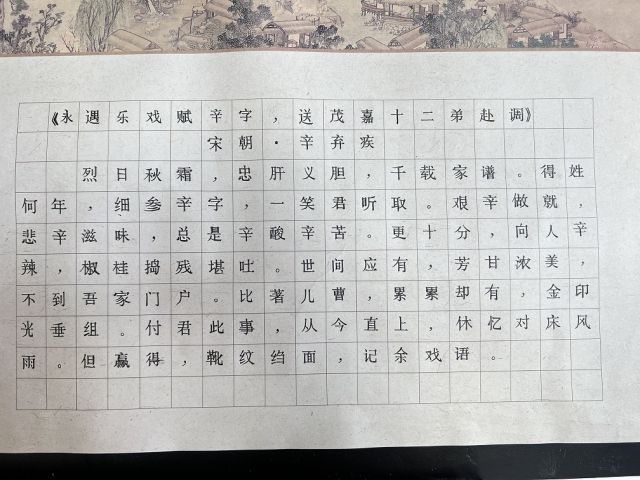 《永遇乐戏赋辛字，送茂嘉十二弟赴调》
宋朝·辛弃疾
烈日秋霜，忠肝义胆，千载家谱。得姓
何年，细参辛字，一笑君听取。艰辛做就，
悲辛滋味，总是辛酸辛苦。更十分，向人辛
辣，椒桂捣残堪吐。世间应有，芳甘浓美，
不到吾家门户。比著儿曹，累累却有，金印
光垂组。付君此事，从今直上，休忆对床风
雨。但赢得，靴纹绉面，记余戏语。